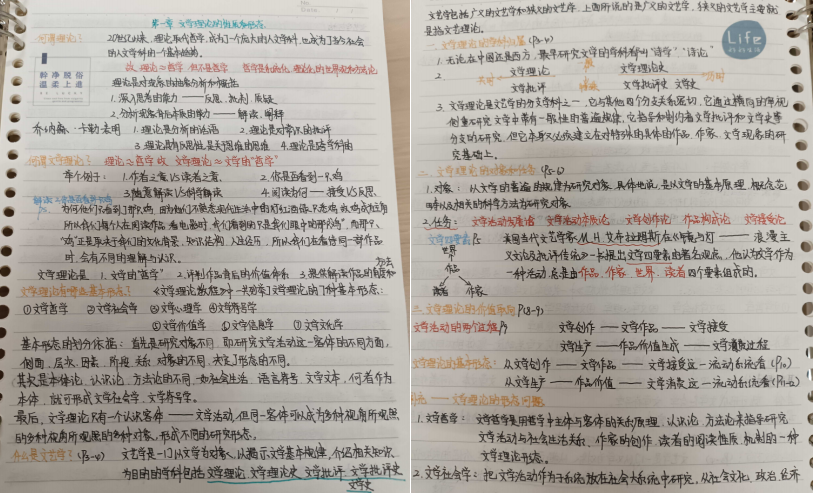 第一章 文学理论的性质和形态
何谓理论？ 20世纪以来，理论取代哲学，成为了一个庞大的人文学科，也成为了当今社会
的人文学科的一个基本结构。
故 理论≈哲学 但不是哲学
理论是对现象的抽象分析和概括
1. 深入思考的能力——反思、批判、质疑
2. 分析现象背后本质的能力——解读、阐释
乔纳森·卡勒 表明 1. 理论是分析的话语 2. 理论是对常识的批评
3. 理论具有反思性，是关于思维的思维 4. 理论是跨学科的
何谓文学理论？ 理论≈哲学 故 文学理论≈文学的“哲学”
举个例子： 1. 作者之意VS读者之意 2. 你是否看到一只鸡
3. 随意解读VS科学解读 4. 阅读为何——接受VS反思
为何他们只看到了那只鸡
所以我们每个人在阅读作品、看电影时，我们看到的只是我们眼中的那只“鸡”，而那个
“鸡”正是取决于我们的文化背景、知识结构、人生经历，所以我们在看待同一部作品
时，会有不同的理解与认识。
文学理论是 1. 文学的“哲学” 2. 评判作品背后的价值体系 3. 提供解读作品的角度和
方法
文学理论有哪些基本形态？ 《文学理论教程》中一共列举了文学理论的7种基本形态：
①文学哲学 ②文学社会学 ③文学心理学 ④文学符号学
⑤文学价值学 ⑥文学信息学 ⑦文学文化学
基本形态的划分依据：首先是研究对象不同，即研究文学活动这一客体的不同方面，
侧面、层次、因素、阶段、关系，对象的不同，决定了形态的不同。
其次是本体论、认识论、方法论的不同，如社会生活、语言符号、文学文本，何者作为
本体，就可形成文学社会学、文学符号学。
最后，文学理论只有一个认识客体——文学活动，但同一客体可以成为多种视角所观照
的多种视角所观照的多种对象，形成不同的研究形态。
什么是文艺学？(P3-4) 文艺学是一门以文学为对象，以揭示文学基本规律，介绍相关知识
为目的的学科包括 文学理论、文学理论史、文学批评、文学批评史
文学史
幹净脱俗
温柔上进
文艺学包括广义的文艺学和狭义的文艺学，上面所说的是广义的文艺学，狭义的文艺学主要就
是指文学理论。
Life
一、文学理论的学科归属 (P3-4)
1. 无论在中国还是西方，最早研究文学的学科都叫“诗学”“诗论”
2. 文学理论 文学理论史
文学批评 文学批评史 文学史
3. 文学理论是文艺学的分支学科之一，它与其他四个分支关系密切，它通过横向的审视
侧重研究文学中带有一般性的普遍规律，它指导和制约着文学批评和文学史等
分支的研究，但它本身又必须建立在对特殊的具体的作品、作家、文学现象的研
究基础上。
二、文学理论的对象和任务 (P5-6)
1. 对象：从文学的普遍的规律为研究对象，具体地说，是以文学的基本原理、概念范
畴以及相关的科学方法为研究对象。
2. 任务：文学活动发展论 文学活动本质论 文学创作论 作品构成论 文学接受论
文学四要素 P5 美国当代文艺学家M.H.艾布拉姆斯在《镜与灯——浪漫主
世界 义文论及批评传统》一书提出文学四要素的著名观点，他认为文学作为
作品 一种活动，总是由作品、作家、世界、读者四个要素组成的。
读者 作家
三、文学理论的价值取向 P(8-9)
文学活动的两个过程 P9 文学创作——文学作品——文学接受
文学生产——作品价值生成——文学消费过程
文学理论的基本形态：从文学创作——文学作品——文学接受这一流动系统看 (P10)
从文学生产——作品价值——文学消费这一流动系统看 (P11-12)
——文学理论的形态问题
1. 文学哲学：文学哲学是用哲学中主体与客体的关系原理、认识论、方法论来指导研究
文学活动与社会生活关系、作家的创作、读者的阅读性质、机制的一种
文学理论形态。
2. 文学社会学：把文学活动作为子系统放在社会大系统中研究，从社会文化、政治、经济